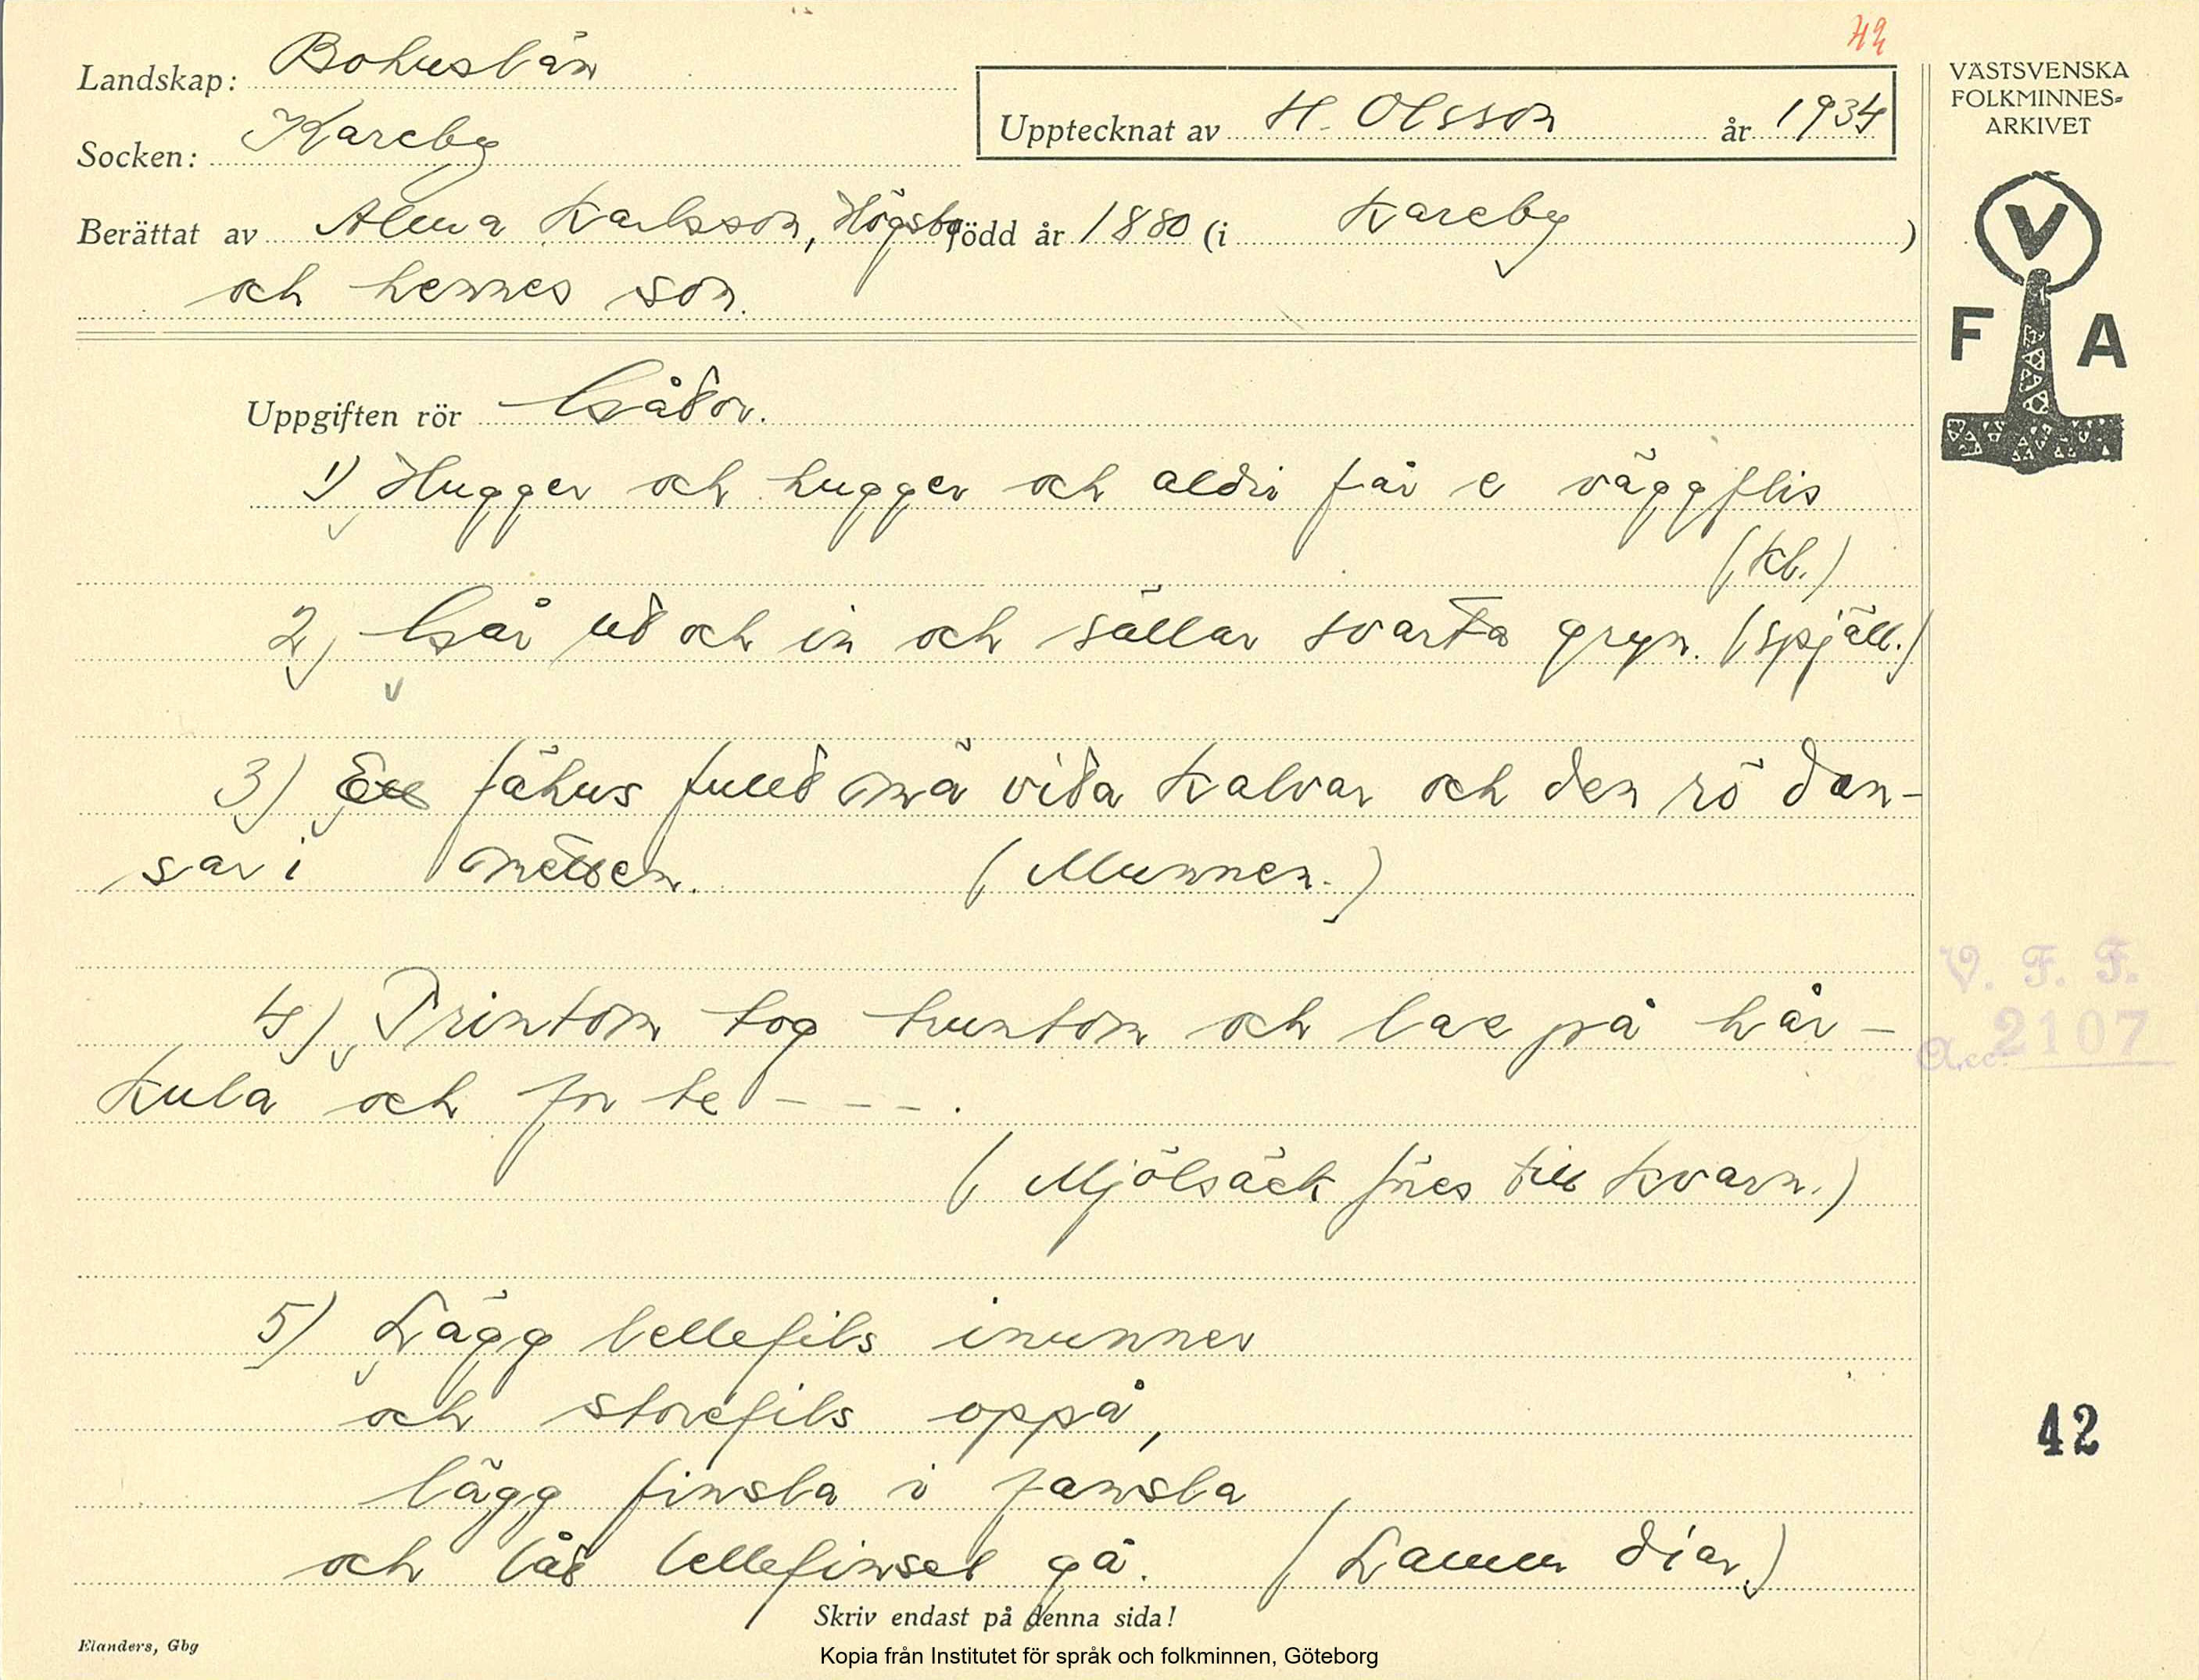 42
Landskap: Bohuslän
Socken: Kareby
Upptecknat av H. Olsson år 1934
VÄSTSVENSKA
FOLKMINNES-
ARKIVET
V
F A
Berättat av Alma Karlsson, Högsbo född år 1880 (i Kareby)
och hennes son.
Uppgiften rör Gåtor.
1) Hugger och hugger och aldri får e väggflis
(kl.)
2) Går ut och in och sållar svarta gryn. (spjäll.)
3) Ett fähus fullt mä vita kalvar och den rö dan-
sar i metten. (Munnen.)
4) Trintom tog truntom och lae på hår-
kula och for te - - - .
(Mjölsäck föres till kvarn.)
V. F. F.
Acc. 2107
5) Lägg lellefils inunner
och storefils oppå,
lägg finsla i fansla
och låt lellefinsel gå. (Lamm diar.)
42
Skriv endast på denna sida!
Elanders, Gbg
Kopia från Institutet för språk och folkminnen, Göteborg